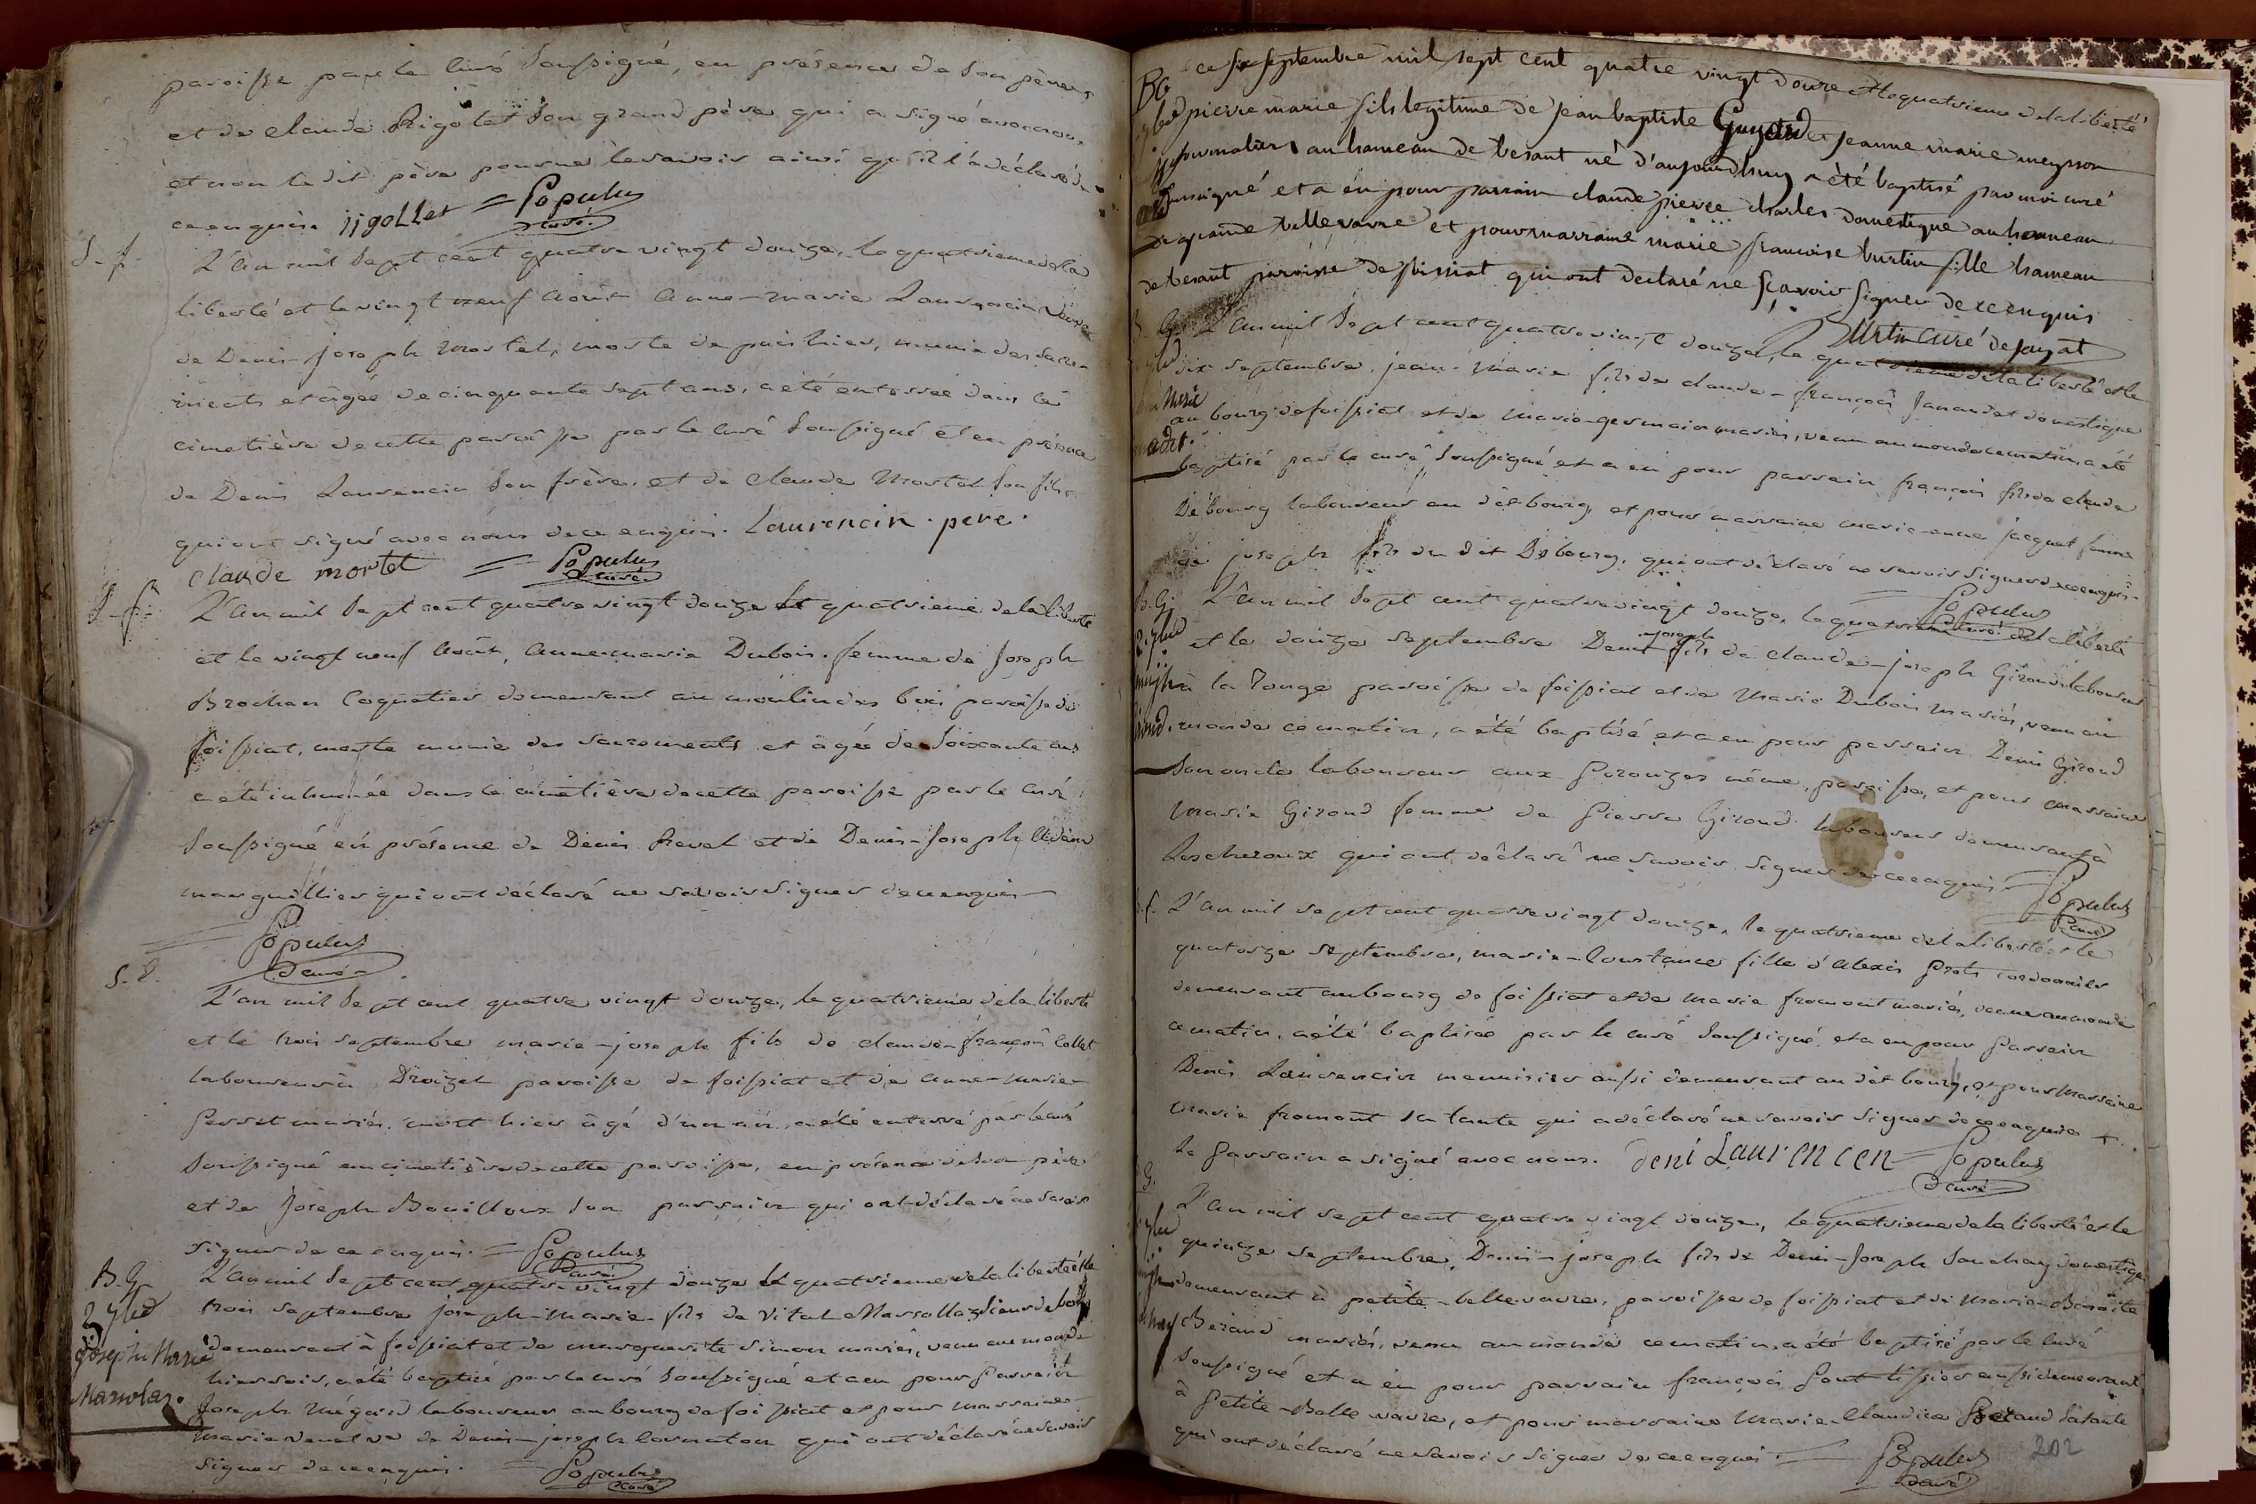 paroisse par le curé soussigné, en présence de son père
et de claude Rigolet son grand père qui a signé avec nous,
et non le dit père pour ne le savoir ainsi qu'il l'a déclaré de
ce enquis. rigollet = Populus
curé.
S. f.
L'an mil sept cent quatre vingt douze, le quatrieme de la
liberté et le vingt neuf août anne-marie Laurencin veuve
de Denis-joseph mortel, morte depuis hier, munie des sacre-
ments et agée de cinquante sept ans, a été enterrée dans le
cimetière de cette paroisse par le curé soussigné et en présence
de Denis Laurencin son frère, et de claude Mortel son fils
qui ont signé avec nous de ce enquis. Laurencin . pere .
claude mortel = Populus
curé
S. f.
L'an mil sept cent quatre vingt douze le quatrieme de la liberté
et le vingt neuf août, anne-marie Dubois femme de Joseph
Brochan Coquetier demeurant au moulin des bois paroisse de
foissiat, morte munie des sacrements et agée de soixante ans
a été inhumée dans le cimetière de cette paroisse par le curé
soussigné en présence de Denis Revel et de Denis-Joseph
marguillier qui ont déclaré ne savoir signer de ce enquis
Populus
curé
S. G.
L'an mil sept cent quatre vingt douze, le quatrieme de la liberté
et le trois septembre marie-joseph fils de claude-françois Collet
laboureur à paroisse de foissiat et de anne-marie
Perret mariés, mort hier agé d'un an, a été enterré par le curé
soussigné au cimetière de cette paroisse, en présence de son père
et de Joseph Bouilloux son parrain qui ont déclaré ne savoir
signer de ce enquis. = Populus
curé
B. G.
3 7bre
joseph Marie
Marrolaz.
L'an mil sept cent quatre vingt douze le quatrieme de la liberté et le
trois septembre joseph-marie fils de Vital Marrollaz
demeurant à foissiat et de marguerite Simon mariés, venu au monde
hier soir, a été baptisé par le curé soussigné et a eu pour parrain
Joseph laboureur au bourg de foissiat et pour marraine
marie veuve de Denis-joseph qui ont déclaré ne savoir
signer de ce enquis. Populus
curé
BG
ce six septembre mil sept cent quatre vingt douze et le quatrieme de la liberté
pierre marie fils legitime de jean baptiste Guyard et jeanne marie meysson
journaliers au hameau de besant né d'aujourdhuy a été baptisé par moi curé
soussigné et a eu pour parrain claude pierre charles domestique au hameau
de grande bellevavre et pour marraine marie francoise burtin fille hameau
de besant paroisse de foissiat qui ont declaré ne sçavoir signer de ce enquis
Burtin curé de jayat
B. G.
L'an mil sept cent quatre vingt douze, le quatrieme de la liberté et le
dix septembre, jean-marie fils de claude-françois Janaudet domestique
au bourg de foissiat et de marie-germain mariés, venu au monde ce matin, a été
baptisé par le curé soussigné et a eu pour parrain françois fils de claude
Débourg laboureur au dit bourg et pour marraine marie-anne jacquet femme
de joseph fils du dit Débourg, qui ont déclaré ne savoir signer de ce enquis.
= Populus
curé
B. G.
12. 7bre
L'an mil sept cent quatre vingt douze, le quatrieme de la liberté
et le douze septembre Denis-joseph fils de claude-joseph Giroud laboureur
à la Tonge paroisse de foissiat et de marie Dubois mariés, venu au
monde ce matin, a été baptisé et a eu pour parrain Denis Giroud
son oncle laboureur aux Perouzes même paroisse, et pour marraine
marie Giroud femme de Pierre Giroud laboureur demeurant à
Lescheroux qui ont déclaré ne savoir signer de ce enquis. = Populus
curé
L'an mil sept cent quatre vingt douze, le quatrieme de la liberté et le
quatorze septembre, marie-Constance fille d'alexis Prots cordonnier
demeurant au bourg de foissiat et de marie fromont mariés, venue au monde
ce matin, a été baptisée par le curé soussigné et a eu pour parrain
Denis Laurencin menuisier aussi demeurant au dit bourg, et pour marraine
marie fromont sa tante qui a déclaré ne savoir signer de ce enquis +.
le parrain a signé avec nous. deni Laurencen = Populus
curé
G.
7bre
L'an mil sept cent quatre vingt douze, le quatrieme de la liberté et le
quinze septembre, Denis-joseph fils de Denis-Joseph Sauchay domestique
demeurant à petite-bellevavre, paroisse de foissiat et de marie-Benoîte
Beraud mariés, venu au monde ce matin, a été baptisé par le curé
soussigné et a eu pour parrain françois Pont tissier aussi demeurant
à petite-Belle vavre, et pour marraine marie-Claudine Beraud sa tante
qui ont déclaré ne savoir signer de ce enquis. = Populus
curé
202